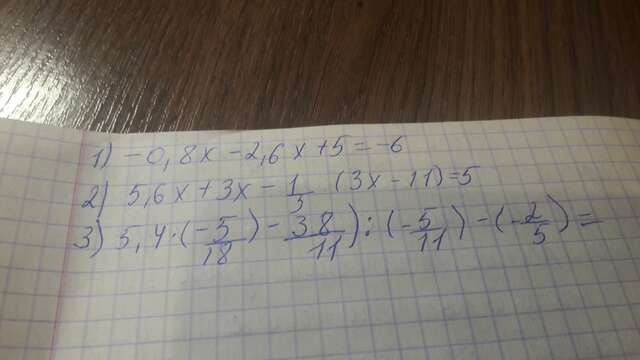 1) -0,8x -2,6x+5=-6
2) 5,6x+3x-1/5 (3x-11)=5
3) 5,4·(-5/18)-38/11):(-5/11)-(-2/5)=